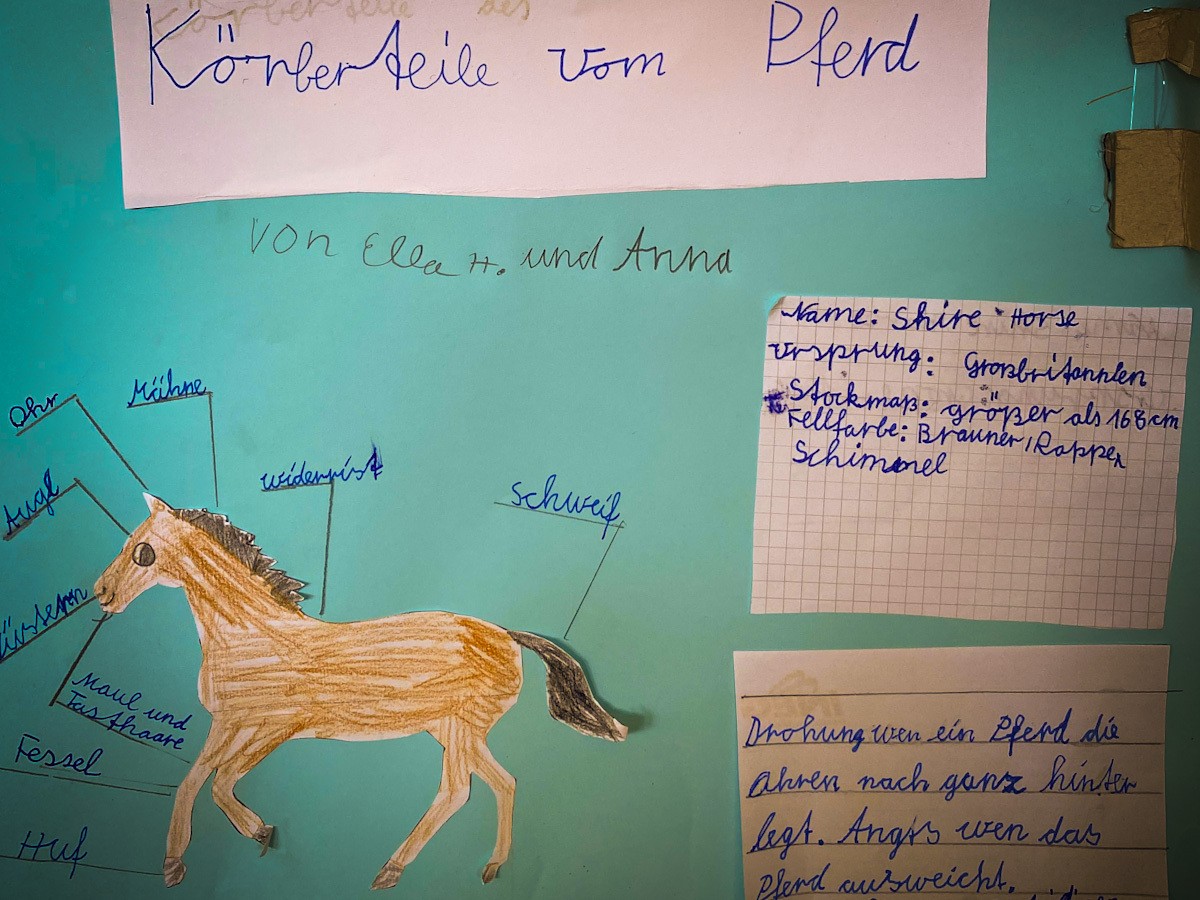 Körberteile vom Pferd
von Ella H. und Anna
Name: Shire Horse
Ursprung: Großbritannien
Stockmaß: größer als 168 cm
Fellfarbe: Brauner, Rappe,
Schimmel
Ohr
Mähne
Auge
widerrist
Schweif
Nüstern
Maul und
Tasthaare
Fessel
Huf
Drohung wen ein Pferd die
Ohren nach ganz hinter
legt. Angts wen das
Pferd ausweicht.